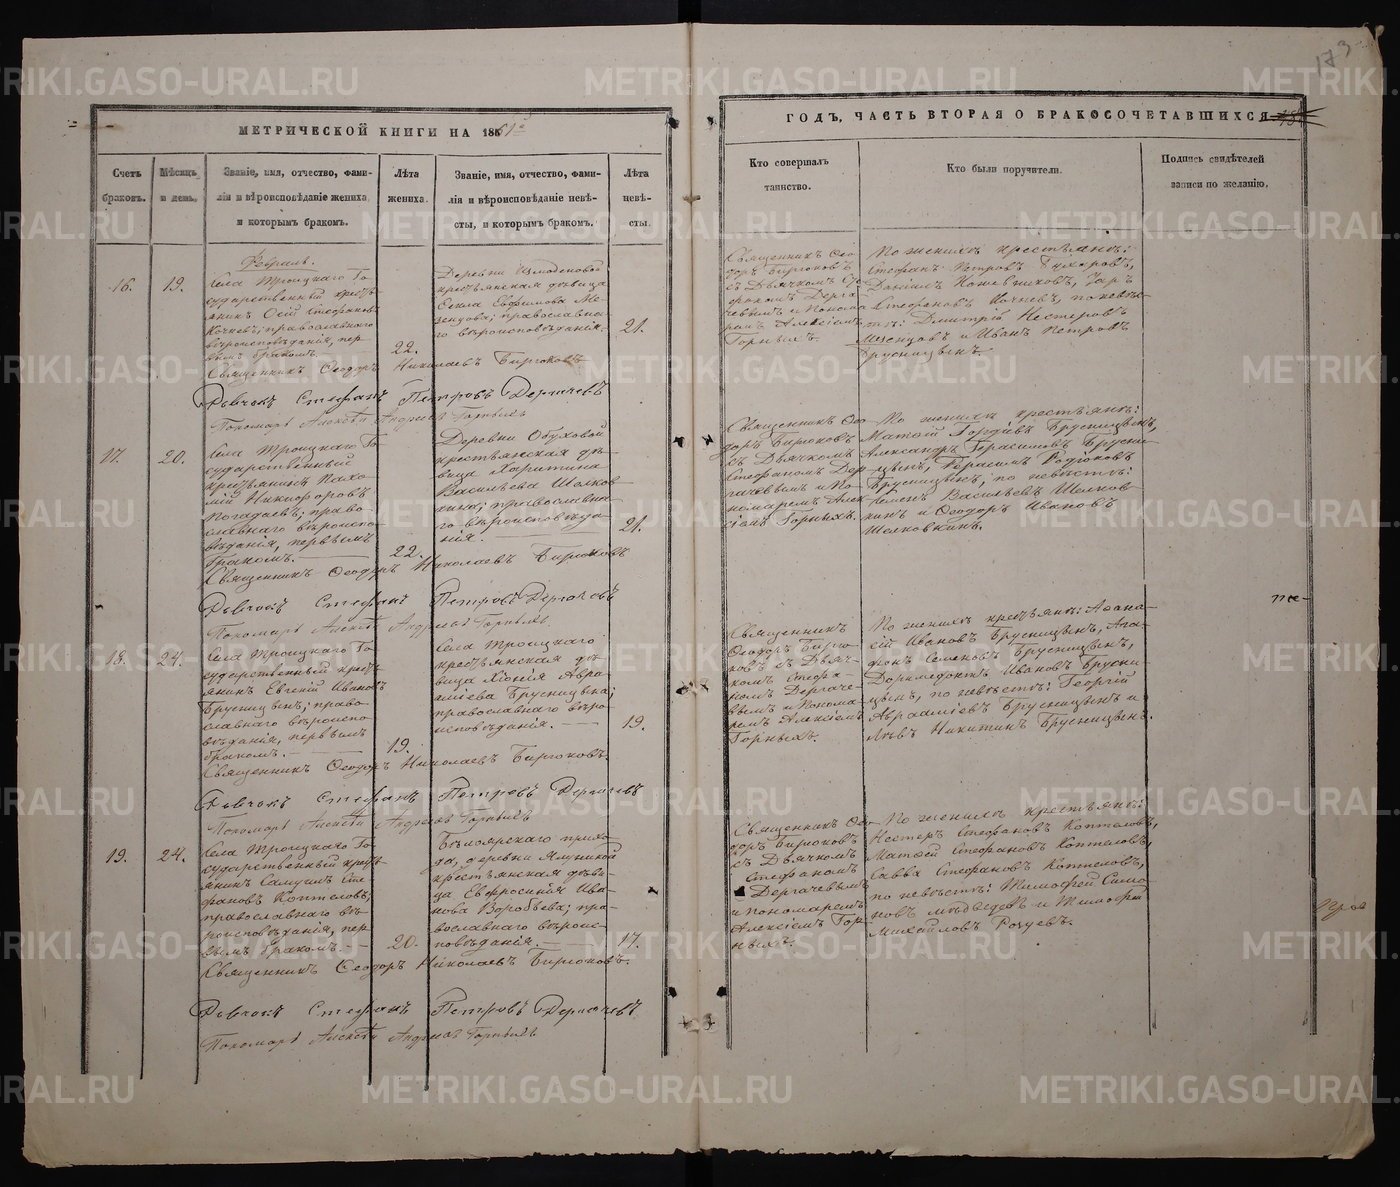 173
МЕТРИЧЕСКОЙ КНИГИ НА 1861й
ГОДЪ, ЧАСТЬ ВТОРАЯ О БРАКОСОЧЕТАВШИХСЯ
Счетъ браковъ.
Мѣсяцъ и день.
Званіе, имя, отчество, фами-
лія и вѣроисповѣданіе жениха,
и которымъ бракомъ.
Лѣта жениха.
Званіе, имя, отчество, фами-
лія и вѣроисповѣданіе невѣ-
сты, и которымъ бракомъ.
Лѣта невѣ-
сты.
Кто совершалъ
таинство.
Кто были поручители.
Подпись свидѣтелей
записи по желанію.
Февраль.
16.
19.
Села Троицкаго Го-
сударственный кресть-
янинъ Осій Стефановъ
Кочневъ; православнаго
вѣроисповѣданія, пер-
вымъ бракомъ.
22.
Деревни
крестьянская дѣвица
Фекла Евфимова Ме-
зенцова; православна-
го вѣроисповѣданія.
21.
Священникъ Ѳео-
доръ Бирюковъ
съ Дьячкомъ Сте-
фаномъ Дерга-
чевымъ и Понома-
ремъ Алексіемъ
Горныхъ.
По женихѣ крестьяне:
Стефанъ Петровъ
Даніилъ Кожевниковъ,
Стефановъ Кочневъ, по невѣ-
стѣ: Дмитрій Нестеровъ
Мезенцовъ и Иванъ Петровъ
Брусницынъ.
Священникъ Ѳеодоръ Николаевъ Бирюковъ
Дьячокъ Стефанъ Петровъ Дергачевъ
Пономарь Алексѣй Андреевъ Горныхъ
17.
20.
Села Троицкаго Го-
сударственный
крестьянинъ Пахо-
мій Никифоровъ
Погадаевъ; право-
славнаго вѣроиспо-
вѣданія, первымъ
бракомъ.
22.
Деревни Обуховой
крестьянская дѣ-
вица Харитина
Васильева Шелков-
кина; православна-
го вѣроисповѣда-
нія.
21.
Священникъ Ѳео-
доръ Бирюковъ
съ Дьячкомъ
Стефаномъ Дер-
гачевымъ и По-
номаремъ Алек-
сіемъ Горныхъ.
По женихѣ крестьяне:
Матѳій Гордѣевъ Брусницынъ,
Александръ Герасимовъ Брусни-
цынъ, Герасимъ Родіоновъ
Брусницынъ, по невѣстѣ:
Семенъ Васильевъ Шелков-
кинъ и Ѳеодоръ Ивановъ
Шелковкинъ.
Священникъ Ѳеодоръ Николаевъ Бирюковъ
Дьячокъ Стефанъ Петровъ Дергачевъ
Пономарь Алексѣй Андреевъ Горныхъ
18.
24.
Села Троицкаго Го-
сударственный кресть-
янинъ Евгеній Ивановъ
Брусницынъ; право-
славнаго вѣроиспо-
вѣданія, первымъ
бракомъ.
19.
Села Троицкаго
крестьянская дѣ-
вица Хіонія Авра-
міева Брусницына;
православнаго вѣро-
исповѣданія.
19.
Священникъ
Ѳеодоръ Бирю-
ковъ съ Дьяч-
комъ Стефа-
номъ Дергаче-
вымъ и Понома-
ремъ Алексіемъ
Горныхъ.
По женихѣ крестьяне: Аѳана-
сій Ивановъ Брусницынъ, Ага-
фонъ Семеновъ Брусницынъ,
Доримедонтъ Ивановъ Брусни-
цынъ, по невѣстѣ: Георгій
Авраамiевъ Брусницынъ и
Левъ Никитинъ Брусницынъ.
Священникъ Ѳеодоръ Николаевъ Бирюковъ.
Дьячокъ Стефанъ Петровъ Дергачевъ
Пономарь Алексѣй Андреевъ Горныхъ
19.
24.
Села Троицкаго Го-
сударственный кресть-
янинъ Самуилъ Сте-
фановъ Коптеловъ;
православнаго вѣ-
роисповѣданія, пер-
вымъ бракомъ.
20.
Бѣлоярскаго прихо-
да, деревни Ялуниной
крестьянская дѣви-
ца Евфросинія Ива-
нова Воробьева; пра-
вославнаго вѣроис-
повѣданія.
17.
Священникъ Ѳео-
доръ Бирюковъ
съ Дьячкомъ
Стефаномъ
Дергачевымъ
и пономаремъ
Алексіемъ Гор-
ныхъ.
По женихѣ крестьяне:
Нестеръ Стефановъ Коптеловъ,
Матѳей Стефановъ Коптеловъ,
Савва Стефановъ Коптеловъ,
по невѣстѣ: Тимофей Симо-
новъ Медведевъ и Тимофей
Михайловъ
Священникъ Ѳеодоръ Николаевъ Бирюковъ.
Дьячокъ Стефанъ Петровъ Дергачевъ
Пономарь Алексѣй Андреевъ Горныхъ
METRIKI.GASO-URAL.RU